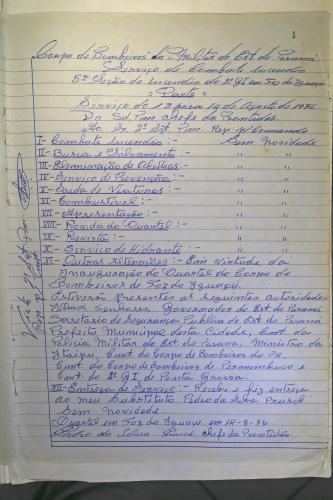 1
Corpo de Bombeiros da P. Militar do Est. do Paraná
Serviço de Combate Incendio
5ª Seção de Incendio do 2º GI em Foz do Iguaçu
= Parte =
Serviço de 13 para 14 de Agosto de 1976
Do Sd. Pm. Chefe da Prontidão
Ao Sr. 2º Sgt. Pm. Resp. p/ Comando
I- Combate Incendio :- Sem Novidade
II- Busca e Salvamento :- " "
III- Eleminação de Abelhas :- " "
IV- Serviço de Prevenção :- " "
V- Saida de Viaturas :- " "
VI- Combustível :- " "
VII- Apresentação :- " "
VIII- Ronda do Quartel :- " "
IX- Revista :- " "
X- Serviço de Hidrante :- " "
XI- Outras Alterações :- Em Virtude da
Inauguração do Quartel do Corpo de
Bombeiros de Foz do Iguaçu.
Estiverão Presentes as seguintes autoridades
Ilmos Senhores, Governador do Est. do Paraná
Secretario de Segurança Publica do Est. do Paraná
Prefeito Municipal desta Cidade, Cmt. da
Policia Militar do Est. do Parana, Ministro da
Itaipu, Cmt. do Corpo de Bombeiros do PR,
Cmt. do Corpo de Bombeiros de Pernambuco e
Cmt. do 2º GI de Ponta Grossa.
XII- Entrega de Serviço:- Recebi e fiz entrega
ao meu Substituto Pedro da Silva Prusch
Sem Novidade.
Quartel em Foz do Iguaçu, em 14-8-76
Pedro da Silva Chefe da Prontidão
Visto 2º Sgt Pm
Resp. p/ Cmt